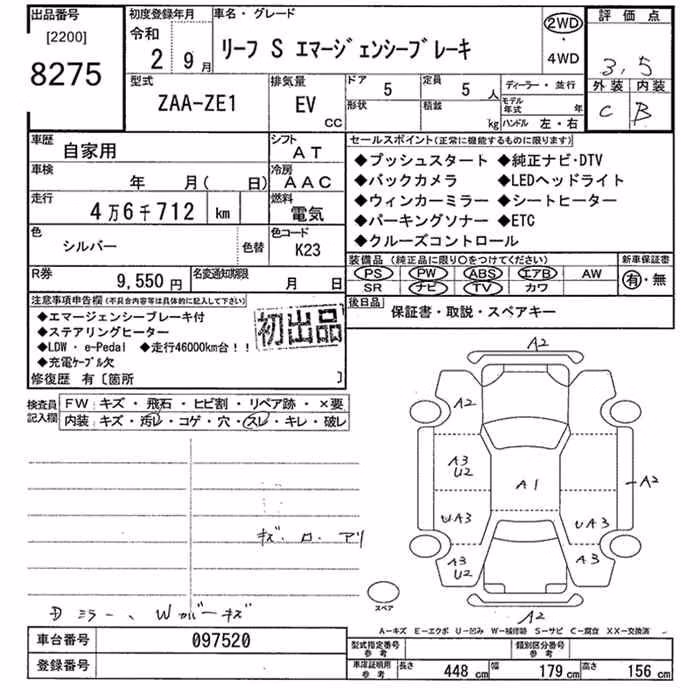 出品番号
[2200]
8275
初度登録年月
令和
2 9月
車名・グレード
リーフ S エマージェンシーブレーキ
2WD
・
4WD
評価点
3.5
外装 内装
C B
型式
ZAA-ZE1
排気量
EV
CC
ドア
5
定員
5 人
形状
積載
kg
ディーラー・並行
モデル年式
年
ハンドル 左・右
車歴
自家用
シフト
AT
車検
年 月( 日)
冷房
AAC
走行
4万6千712 km
燃料
電気
色
シルバー
色替
色コード
K23
R券
9,550円
名変通知期限
月 日
セールスポイント(正常に機能するものに限ります)
◆プッシュスタート ◆純正ナビ・DTV
◆バックカメラ ◆LEDヘッドライト
◆ウィンカーミラー ◆シートヒーター
◆パーキングソナー ◆ETC
◆クルーズコントロール
装備品 (純正品に限り○をつけてください)
PS PW ABS エアB AW
SR ナビ TV カワ
新車保証書
有・無
後日品
保証書・取説・スペアキー
注意事項申告欄(不具合内容等は具体的に記入して下さい)
◆エマージェンシーブレーキ付
◆ステアリングヒーター
◆LDW・e-Pedal ◆走行46000km台！！
◆充電ケーブル欠
修復歴 有〔箇所 〕
初出品
検査員
記入欄
FW キズ・飛石・ヒビ割・リペア跡・×要
内装 キズ・汚レ・コゲ・穴・スレ・キレ・破レ
キズ.ロ.アリ
ミラー、Wカバーキズ
A2
A2
A3
U2
A1
A2
UA3
UA3
A3
U2
A3
A2
スペア
A-キズ E-エクボ U-凹み W-補修跡 S-サビ C-腐食 XX-交換済
車台番号
097520
登録番号
型式指定番号
参考
類別区分番号
参考
車庫証明用
参考
長さ 448 cm 幅 179 cm 高さ 156 cm